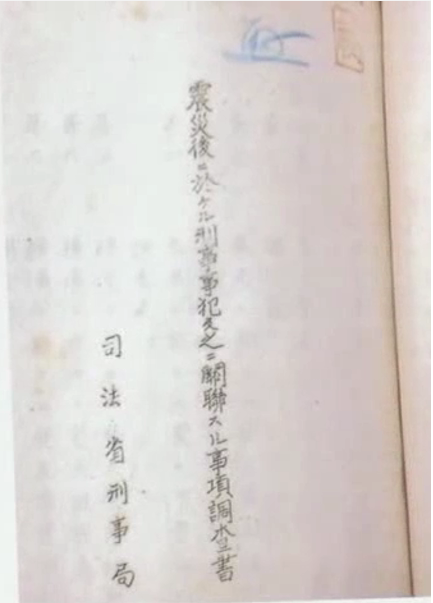 震災後ニ於ケル刑事事犯及之ニ關聯スル事項調査書
司法省刑事局